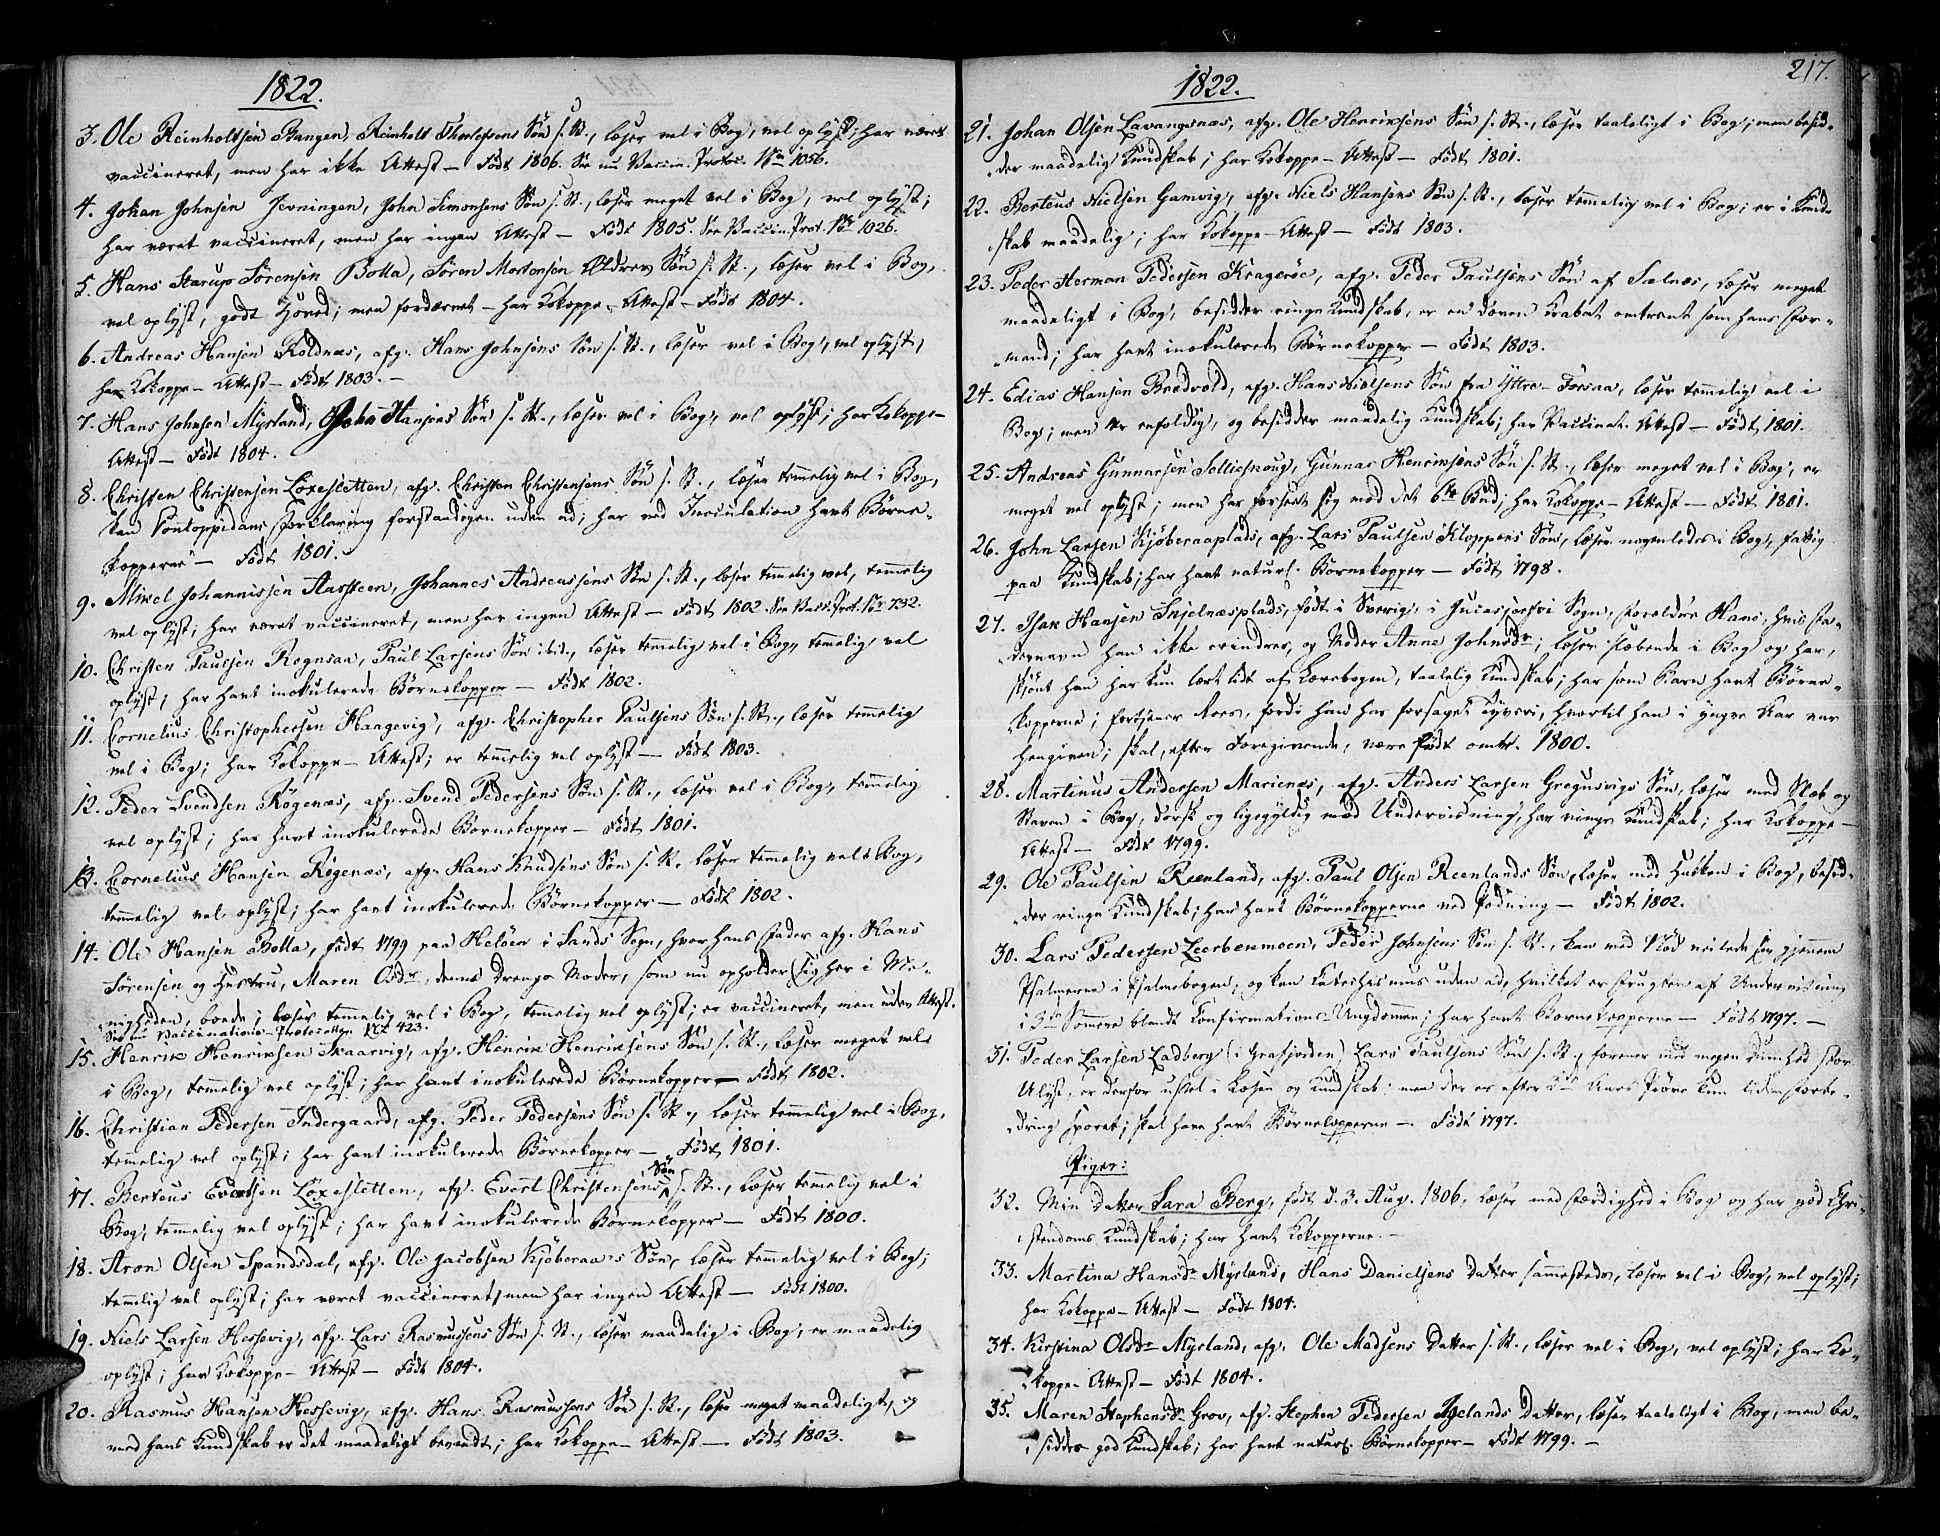 1822.
3. Ole Reinholtsen Bangen, Reinholt Thorlefsens Søn s. St., læser vel i Bog, vel oplyst; har været
vaccineret, men har ikke Attest — Født 1806. See nu Vaccin. Protoc. No 1056.
4. Johan Johnsen Jevningen, John Simonsens Søn s. St., læser meget vel i Bog, vel oplyst;
har været vaccineret, men har ingen Attest — Født 1805. See Vaccin. Prot. No 1026.
5. Hans Starup Sørensen Bolla, Søren Mortensen Aldrev Søn s. St., læser vel i Bog,
vel oplyst, godt Hoved; men fordærvet — har Kokoppe-Attest — Født 1804.
6. Andreas Hansen Koldnæs, afg. Hans Johnsens Søn s. St., læser vel i Bog, vel oplyst,
har Kokoppe-Attest — Født 1803. —
7. Hans Johnsen Myrland, John Hansens Søn s. St., læser vel i Bog, vel oplyst; har Kokoppe-
Attest — Født 1804.
8. Christen Christensen Loxesletten, afg. Christen Christensens Søn s. St., læser temmelig vel i Bog,
kan Pontoppidans Forklaring forstandigen uden ad; har ved Inoculation havt Børne-
kopperne — Født 1801.
9. Mikel Johannissen Aarsteen, Johannes Andreassens Søn s. St., læser temmelig vel, temmelig
vel oplyst; har været vaccineret, men har ingen Attest — Født 1802. See Vacc. Prot. No 732.
10. Christen Paulsen Rognsaa, Paul Larsens Søn ibid., læser temelig vel i Bog, temelig vel
oplyst; har havt inokulerede Børnekopper — Født 1802.
11. Cornelius Christophersen Haagevig, afg. Christopher Paulsens Søn s. St., læser temmelig
vel i Bog; har Kokoppe-Attest; er temelig vel oplyst — Født 1803.
12. Peder Svendsen Røgenæs, afg. Svend Pedersens Søn s. St., læser vel i Bog, temmelig
vel oplyst; har havt inokulerede Børnekopper — Født 1801.
13. Cornelius Hansen Røgenæs, afg. Hans Knudsens Søn s. St. læser temelig vel i Bog,
temmelig vel oplyst; har havt inokulerede Børnekopper — Født 1802.
14. Ole Hansen Bolla, født 1799 paa Heløen i Sands Sogn, hvor hans Fader afg. Hans
Sørensen og Hustru, Maren Olsdr, denne Drengs Moder, som nu opholder sig her i Me-
nigheden, boede; læser temmelig vel i Bog, temmelig vel oplyst; er vaccineret, men uden Attest.
See nu Vaccinations-Protocollen No 423.
15. Henrik Henriksen Skaarvig, afg. Henrik Henriksens Søn s. St., læser meget vel
i Bog, temmelig vel oplyst; har havt inokulerede Børnekopper — Født 1802.
16. Christian Pedersen Indergaard, afg. Peder Pedersens Søn s. St., læser temmelig vel i Bog,
temmelig vel oplyst; har havt inokulerede Børnekopper — Født 1801.
17. Berteus Evertsen Loxesletten, afg. Evert Christensens Søn s. St., læser temmelig vel i
Bog, temmelig vel oplyst; har havt inokulerede Børnekopper — Født 1800.
18. Aron Olsen Spandsdal, afg. Ole Jacobsen Kjøberaa's Søn, læser temmelig vel i Bog;
temmelig vel oplyst; har været vaccineret, men har ingen Attest — Født 1800.
19. Niels Larsen Hessevig, afg. Lars Rasmussens Søn s. St., læser maadelig i Bog, er maadelig
oplyst; har Kokoppe-Attest — Født 1804.
20. Rasmus Hansen Hessevig, afg. Hans Rasmussens Søn s. St., læser meget maadeligt, og
med hans Kundskab er det maadeligt bevendt; har Kokoppe-Attest — Født 1803.
217.
1822.
21. Johan Olsen Lavangsnæs, afg. Ole Henriksens Søn s. St., læser taaleligt i Bog; men besid-
der maadelig Kundskab; har Kokoppe-Attest — Født 1801.
22. Berteus Nielsen Gamvig, afg. Niels Hansens Søn s. St., læser temmelig vel i Bog; er i Kund-
skab maadelig; har Kokoppe-Attest — Født 1803.
23. Peder Herman Pedersen Kragerøe, afg. Peder Paulsens Søn af Sælnæs, læser meget
maadeligt i Bog, besidder ringe Kundskab, er en doven Krabat omtrent som hans For-
mand; har havt inokulerede Børnekopper — Født 1803.
24. Edias Hansen Bredvold, afg. Hans Nielsens Søn fra Yttre-Forsaa, læser temelig vel i
Bog; men er enfoldig, og besidder maadelig Kundskab; har Vaccinat. Attest — Født 1801.
25. Andreas Gunnarsen Solliesnoug, Gunnar Henriksens Søn s. St., læser meget vel i Bog, er
meget vel oplyst; men har forseet sig mod det 6te Bud; har Kokoppe-Attest — Født 1801.
26. John Larsen Kjøberaaplads, afg. Lars Paulsen Kloppens Søn, læser nogenledes i Bog, fattig
paa Kundskab; har havt naturl. Børnekopper — Født 1798.
27. Isak Hansen Snjelnæsplads, født i Sverig, i Jucasjerfvi Sogn, Forældre Hans, hvis Fa-
dernavn han ikke erindrer, og Moder Anne Johnsdr; læser stæbende i Bog og har,
skjønt han har kun lært lidt af Lærebogen, taalelig Kundskab; har som Barn havt Børne-
kopperne; fortjener Roes, fordi han har forsaget Tyveri, hvortil han i yngre Aar var
hengiven; skal, efter Foregivende, være født omtr. 1800.
28. Martinus Andersen Marienæs, afg. Anders Larsen Gregusvigs Søn, læser med Slæb og
Staven i Bog, dorsk og ligegyldig mod Underviisning, har ringe Kundskab; har Kokoppe-
Attest — Født 1799.
29. Ole Paulsen Reenland, afg. Paul Olsen Reenlands Søn, læser med Hakken i Bog, besid-
der ringe Kundskab; har havt Børnekopperne ved Podning — Født 1802.
30. Lars Pedersen Leerbekmoen, Peder Johnsens Søn s. St., kan med Nød veilede sig gjennem
Psalmerne i Psalmebogen, og kan Katechismus uden ad, hvilket er Frugten af Underviisning
i 3de Somere blandt Confirmations-Ungdommen; har havt Børnekopperne — Født 1797. —
31. Peder Larsen Ladberg (i Grafsjorden) Lars Paulsens Søn s. St., forener med megen Dumhed stor
Ulyst, er derfor ussel i Læsen og Kundskab; men der er efter 3de Aars Prøve kun liden Forbe-
dring sporet; skal have havt Børnekopperne — Født 1797.
Piger:
32. Min Datter Sara Berg, født d. 3. Aug. 1806, læser med Færdighed i Bog og har god Chri-
stendoms Kundskab; har havt Kokopperne. —
33. Martina Hansdr Myrland, Hans Danielsens Datter sammesteds, læser vel i Bog, vel oplyst;
har Kokoppe-Attest — Født 1804.
34. Kirstina Olsdr Myrland, afg. Ole Madsens Datter s. St., læser vel i Bog, vel oplyst; har Ko-
koppe-Attest — Født 1804.
35. Maren Stephensdr Grov, afg. Stephen Pedersen Igelands Datter, læser taaleligt i Bog, men be-
sidder god Kundskab; har havt naturl. Børnekopper — Født 1799. —